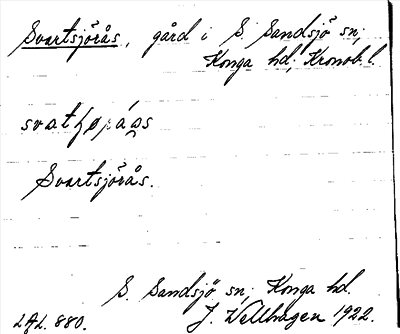 Svartsjörås, gård i S. Sandsjö sn;
Konga hd; Kronob. l.
Svartsjörås.
S. Sandsjö sn; Konga hd.
J. Wellhagen 1922.